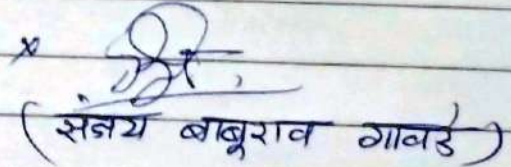 (संजय बाबूराव गावडे)